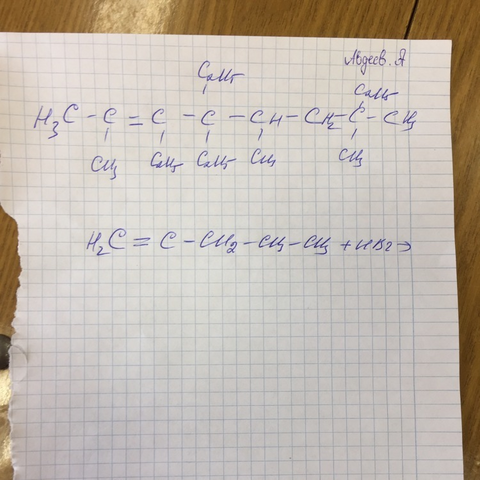 C₂H₅
C₂H₅
H₃C - C = C - C - CH - CH₂ - C - CH₃
CH₃ C₂H₅ C₂H₅ CH₃ CH₃
H₂C = C - CH₂ - CH₂ - CH₃ + HBr →